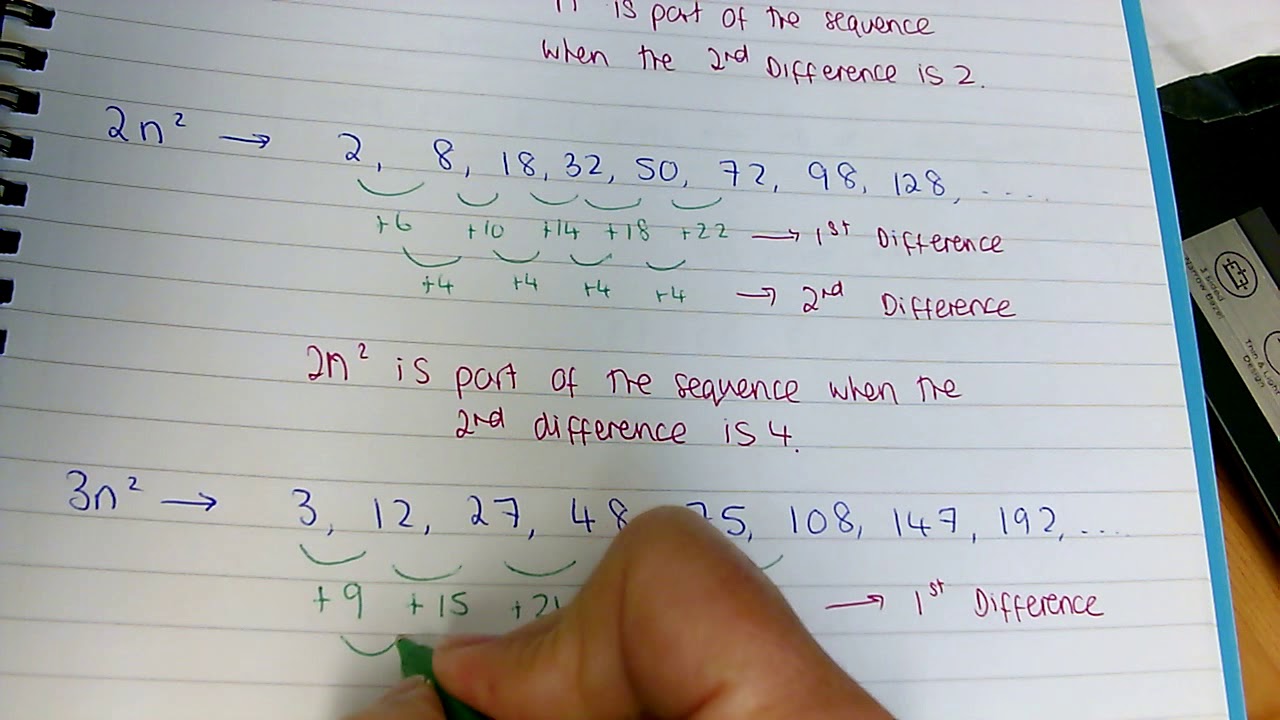 is part of the sequence
when the 2nd Difference is 2.
2n² → 2, 8, 18, 32, 50, 72, 98, 128, ....
+6 +10 +14 +18 +22 → 1st Difference
+4 +4 +4 +4 → 2nd Difference
2n² is part of the sequence when the
2nd difference is 4.
3n² → 3, 12, 27, 48 75, 108, 147, 192, ....
+9 +15 +21 → 1st Difference
3 Sided
Narrow Base
Design